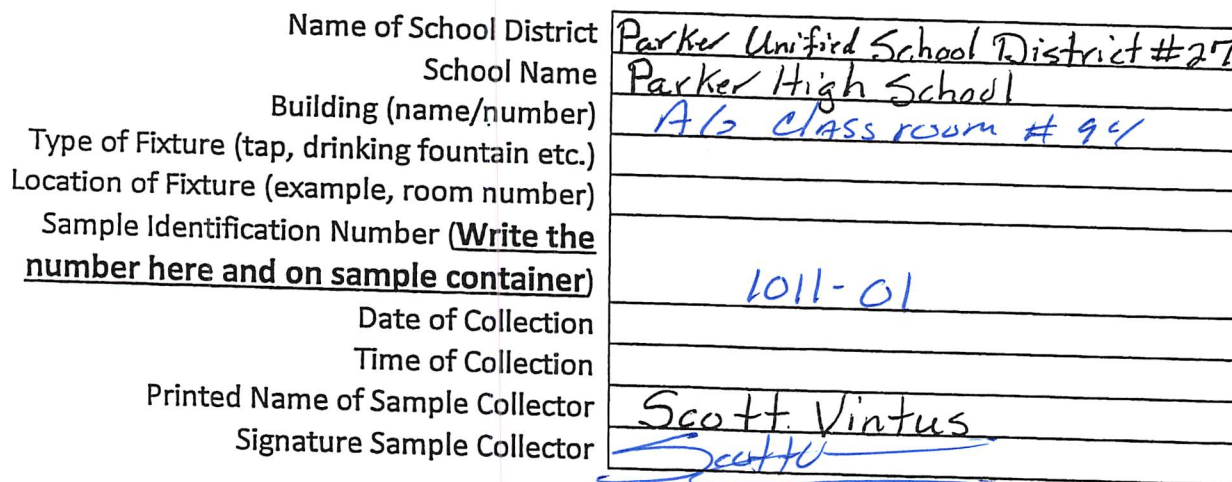 Name of School District Parker Unified School District #27
School Name Parker High School
Building (name/number) Classroom #
Type of Fixture (tap, drinking fountain etc.)
Location of Fixture (example, room number)
Sample Identification Number (Write the
number here and on sample container) 1011-01
Date of Collection
Time of Collection
Printed Name of Sample Collector Scott Vintus
Signature Sample Collector